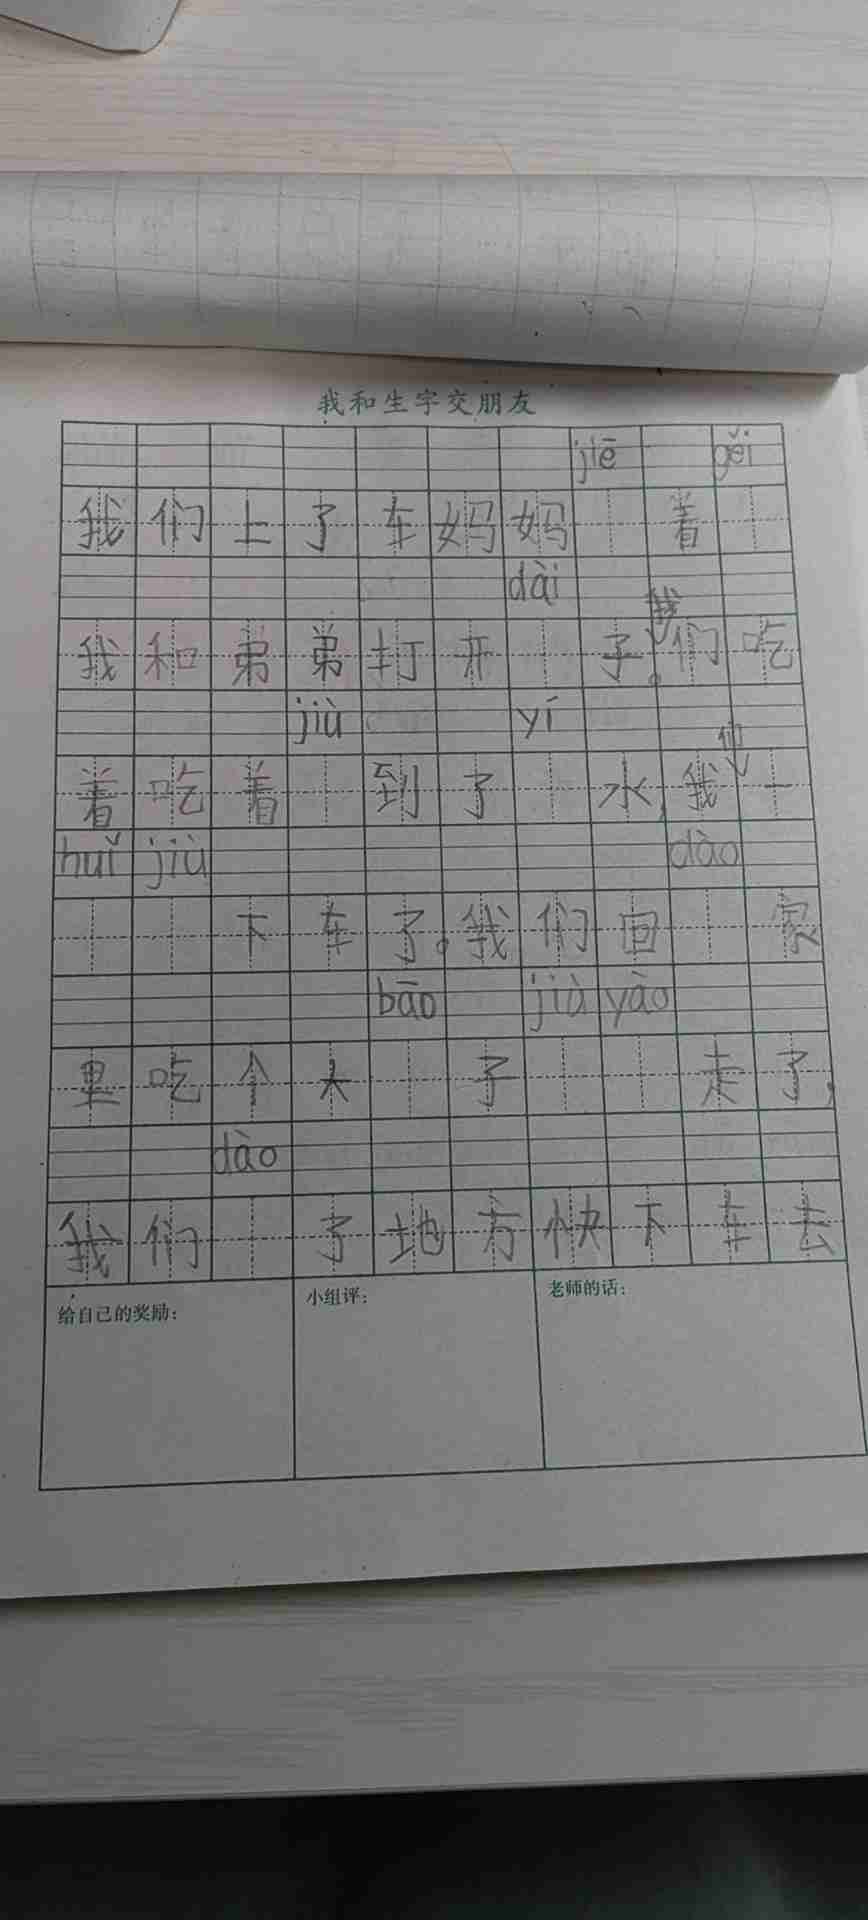 我和生字交朋友
jiē gěi
我们上了车妈妈 着
dài
我
我和弟弟打开 子。们吃
jiù yí
们
着吃着 到了 水,我一
huǐ jiù dào
下车了。我们回 家
bāo jià yào
里吃个大 子 走了,
dào
我们 了地方快下车去
给自己的奖励:
小组评:
老师的话: